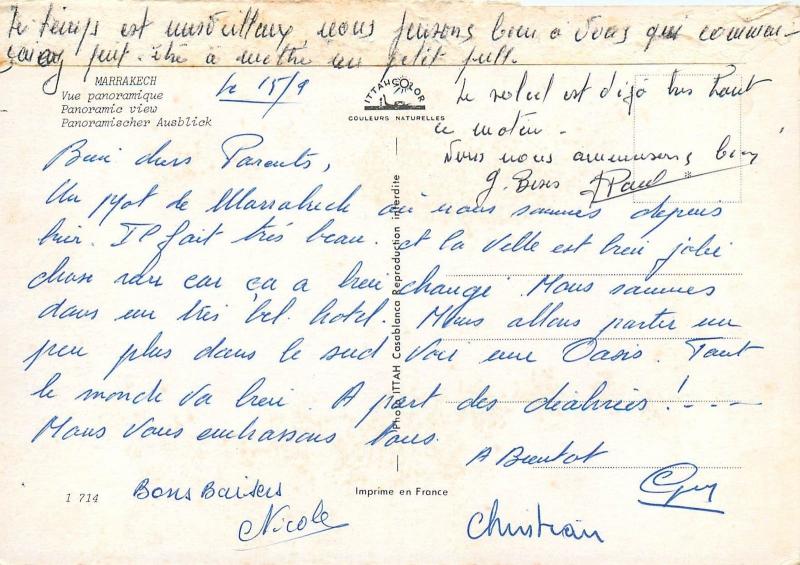 Le temps est merveilleux, nous pensons bien à vous qui commen-
peut-être à mettre un petit pull.
MARRAKECH
Vue panoramique
Panoramic view
Panoramischer Ausblick
le 15/9
ITTAH COLOR
COULEURS NATURELLES
Le soleil est déjà très haut
ce matin -
Nous nous amusons bien
G. Bises JPaul
Bien chers Parents,
Un mot de Marrakech où nous sommes depuis
hier. Il fait très beau. et la ville est bien jolie
chose rare car ça a bien changé. Nous sommes
dans un très bel hotel. Nous allons partir un
peu plus dans le sud voir une Oasis. Tout
le monde va bien. A part des diahrées! ----
Nous vous embrassons tous.
A Bientot
Guy
Bons Baisers
Nicole
Christian
Photo ITTAH Casablanca Reproduction interdite
1 714
Imprime en France